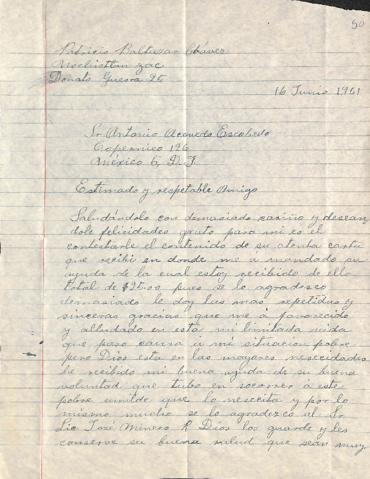 50
Patricio Baltazar Chávez
Nochistlan Zac
Donato Guerra 25
16 Junio 1961
Sr Antonio Acevedo Escobedo
Copernico 126
México 5, D.F.
Estimado y respetable Amigo
Saludándolo con demasiado cariño y desean
dole felicidades grato para mi es el
contestarle el contenido de su atenta carta
que recibi en donde me a mandado su
ayuda de la cual estoy recibido de ella
total de pues se lo agradezco
demasiado le doy las mas repetidas y
sinceras gracias que me á favorecido
y alludado en esta mi limitada vida
que paso causa a mi situacion pobre
pero Dios esta en las mayores nescecidades
he recibido mi buena ayuda de su buena
voluntad que tubo en socorrer á este
pobre umilde que lo nescita y por lo
mismo mucho se lo agradezco al Sr
Lic José Minero R. Dios los guarde y les
conserve su buena salud que sean muy